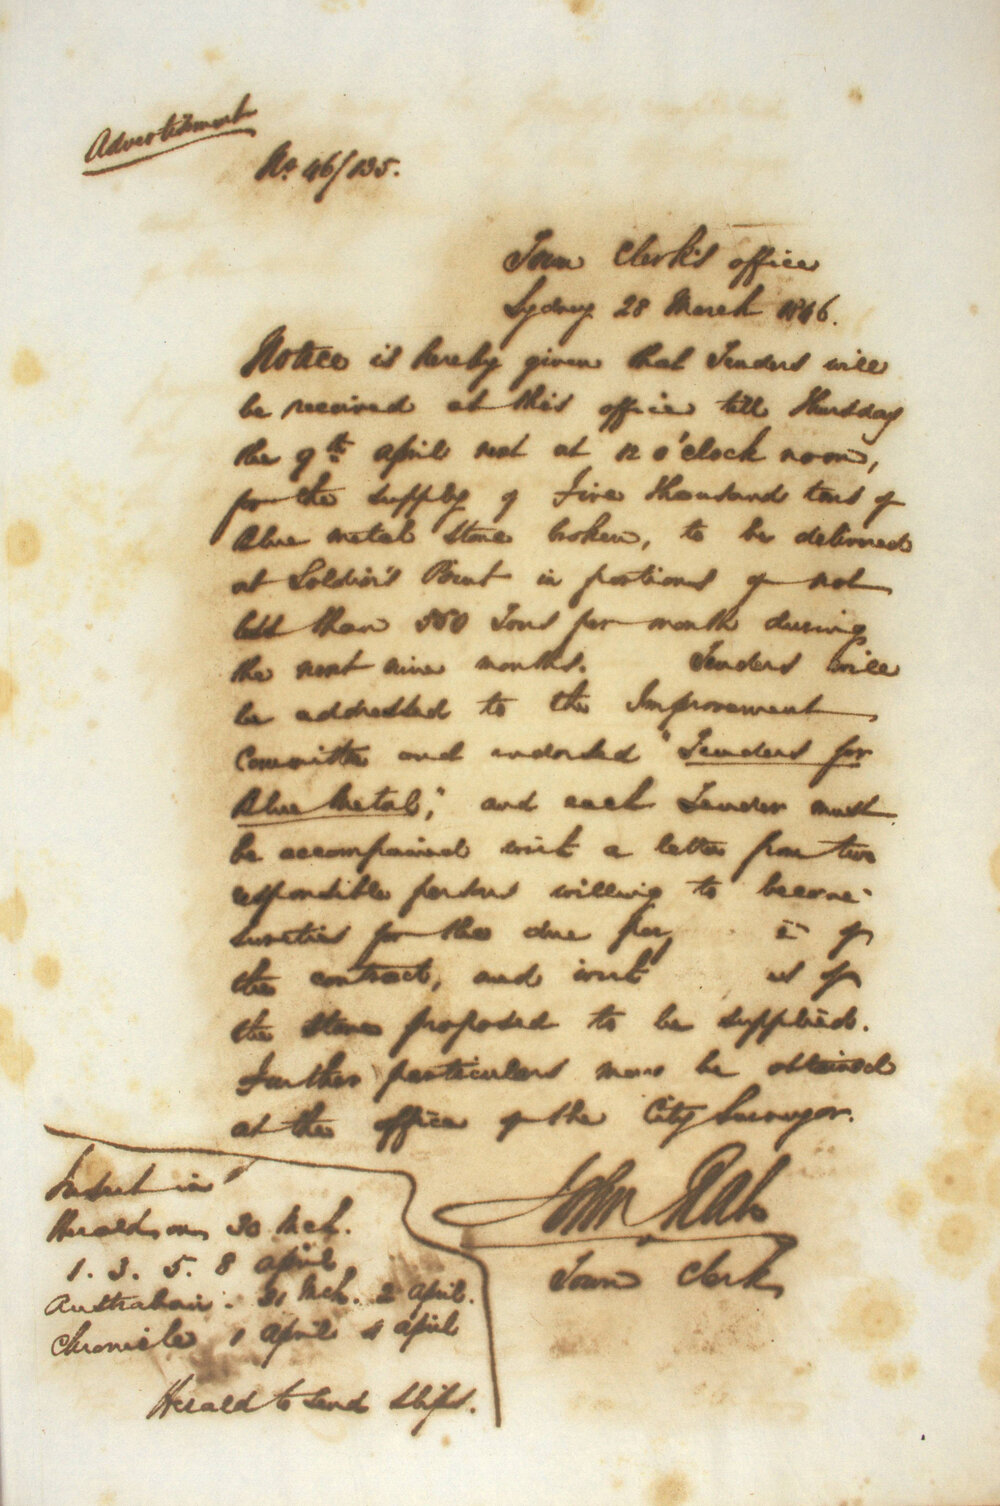 Advertisment
No 46/135.
Town Clerk's office
Sydney 28 March 1846.
Notice is hereby given that Tenders will
be received at this office till Thursday
the 9th April next at 12 o'clock noon,
for the supply of Five thousand tons of
Blue metal stone broken, to be delivered
at Soldier's Point in portions of not
less than 550 Tons per month during
the next nine months. Tenders will
be addressed to the Improvement
Committee and endorsed "Tenders for
Blue Metal", and each Tender must
be accompanied with a letter from two
responsible persons willing to become
sureties for the due per of
the contract, and with of
the stone proposed to be supplied.
Further particulars may be obtained
at the office of the City Surveyor.
John Rae
Town Clerk
Insert in
Herald on 30 Mch.
1. 3. 5. 8 April
Australian. 31 Mch. 2 April.
Chronicle 1 April 4 April
Herald to send slips.